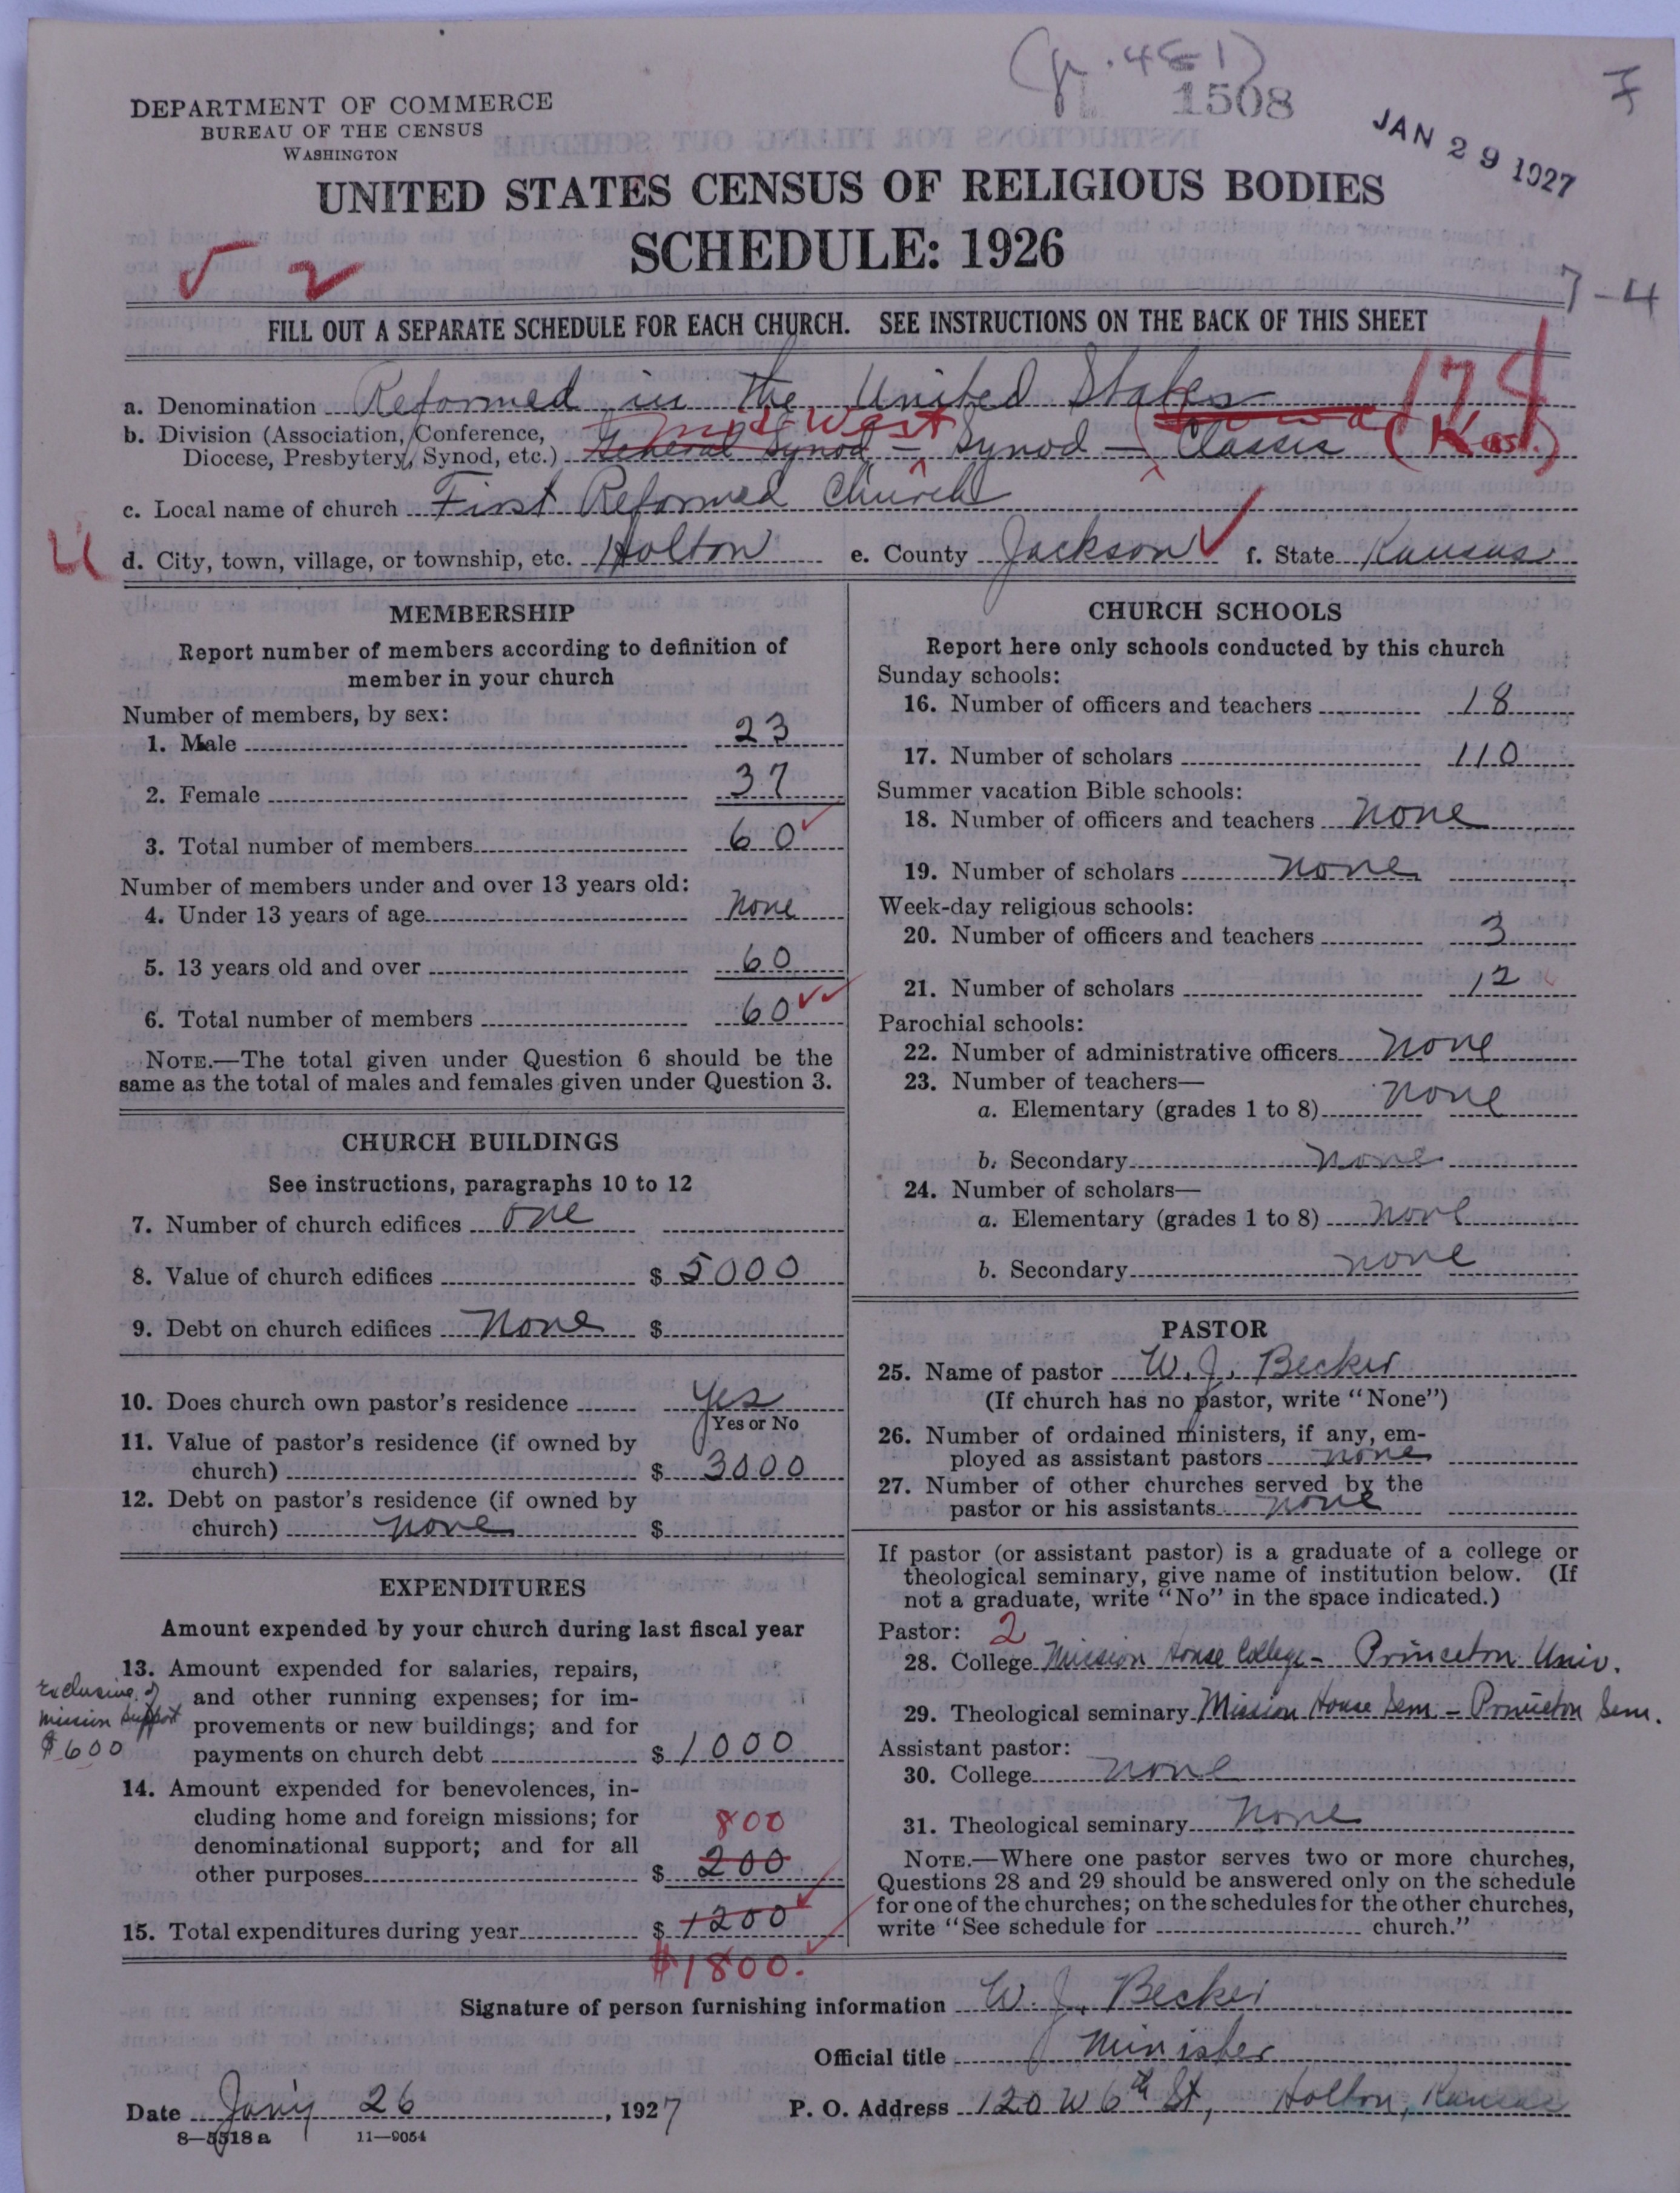 (p. 481)
1508
F
DEPARTMENT OF COMMERCE
BUREAU OF THE CENSUS
WASHINGTON
JAN 29 1927
UNITED STATES CENSUS OF RELIGIOUS BODIES
SCHEDULE: 1926
2
7-4
FILL OUT A SEPARATE SCHEDULE FOR EACH CHURCH. SEE INSTRUCTIONS ON THE BACK OF THIS SHEET
174
a. Denomination Reformed in the United States
Mid-West
b. Division (Association, Conference,
Diocese, Presbytery, Synod, etc.) General Synod - Synod - Classis (Kas.)
c. Local name of church First Reformed Church
d. City, town, village, or township, etc. Holton e. County Jackson f. State Kansas
MEMBERSHIP
Report number of members according to definition of
member in your church
Number of members, by sex:
1. Male 23
2. Female 37
3. Total number of members 60
Number of members under and over 13 years old:
4. Under 13 years of age none
5. 13 years old and over 60
6. Total number of members 60
NOTE.—The total given under Question 6 should be the
same as the total of males and females given under Question 3.
CHURCH BUILDINGS
See instructions, paragraphs 10 to 12
7. Number of church edifices one
8. Value of church edifices $ 5000
9. Debt on church edifices none $
10. Does church own pastor's residence yes
Yes or No
11. Value of pastor's residence (if owned by
church) $ 3000
12. Debt on pastor's residence (if owned by
church) none $
EXPENDITURES
Amount expended by your church during last fiscal year
13. Amount expended for salaries, repairs,
and other running expenses; for im-
provements or new buildings; and for
payments on church debt $ 1000
Exclusive of
mission support
$600
14. Amount expended for benevolences, in-
cluding home and foreign missions; for
denominational support; and for all
other purposes $ 200
800
15. Total expenditures during year $ 1200
$1800.
CHURCH SCHOOLS
Report here only schools conducted by this church
Sunday schools:
16. Number of officers and teachers 18
17. Number of scholars 110
Summer vacation Bible schools:
18. Number of officers and teachers none
19. Number of scholars none
Week-day religious schools:
20. Number of officers and teachers 3
21. Number of scholars 12
Parochial schools:
22. Number of administrative officers none
23. Number of teachers—
a. Elementary (grades 1 to 8) none
b. Secondary none
24. Number of scholars—
a. Elementary (grades 1 to 8) none
b. Secondary none
PASTOR
25. Name of pastor W. J. Becker
(If church has no pastor, write "None")
26. Number of ordained ministers, if any, em-
ployed as assistant pastors none
27. Number of other churches served by the
pastor or his assistants none
If pastor (or assistant pastor) is a graduate of a college or
theological seminary, give name of institution below. (If
not a graduate, write "No" in the space indicated.)
Pastor: 2
28. College Mission House College - Princeton Univ.
29. Theological seminary Mission House Sem - Princeton Sem.
Assistant pastor:
30. College none
31. Theological seminary none
NOTE.—Where one pastor serves two or more churches,
Questions 28 and 29 should be answered only on the schedule
for one of the churches; on the schedules for the other churches,
write "See schedule for church."
Signature of person furnishing information W. J. Becker
Official title Minister
Date Jan'y 26, 1927 P. O. Address 120 W 6th St, Holton, Kansas
8—5518 a 11—9054